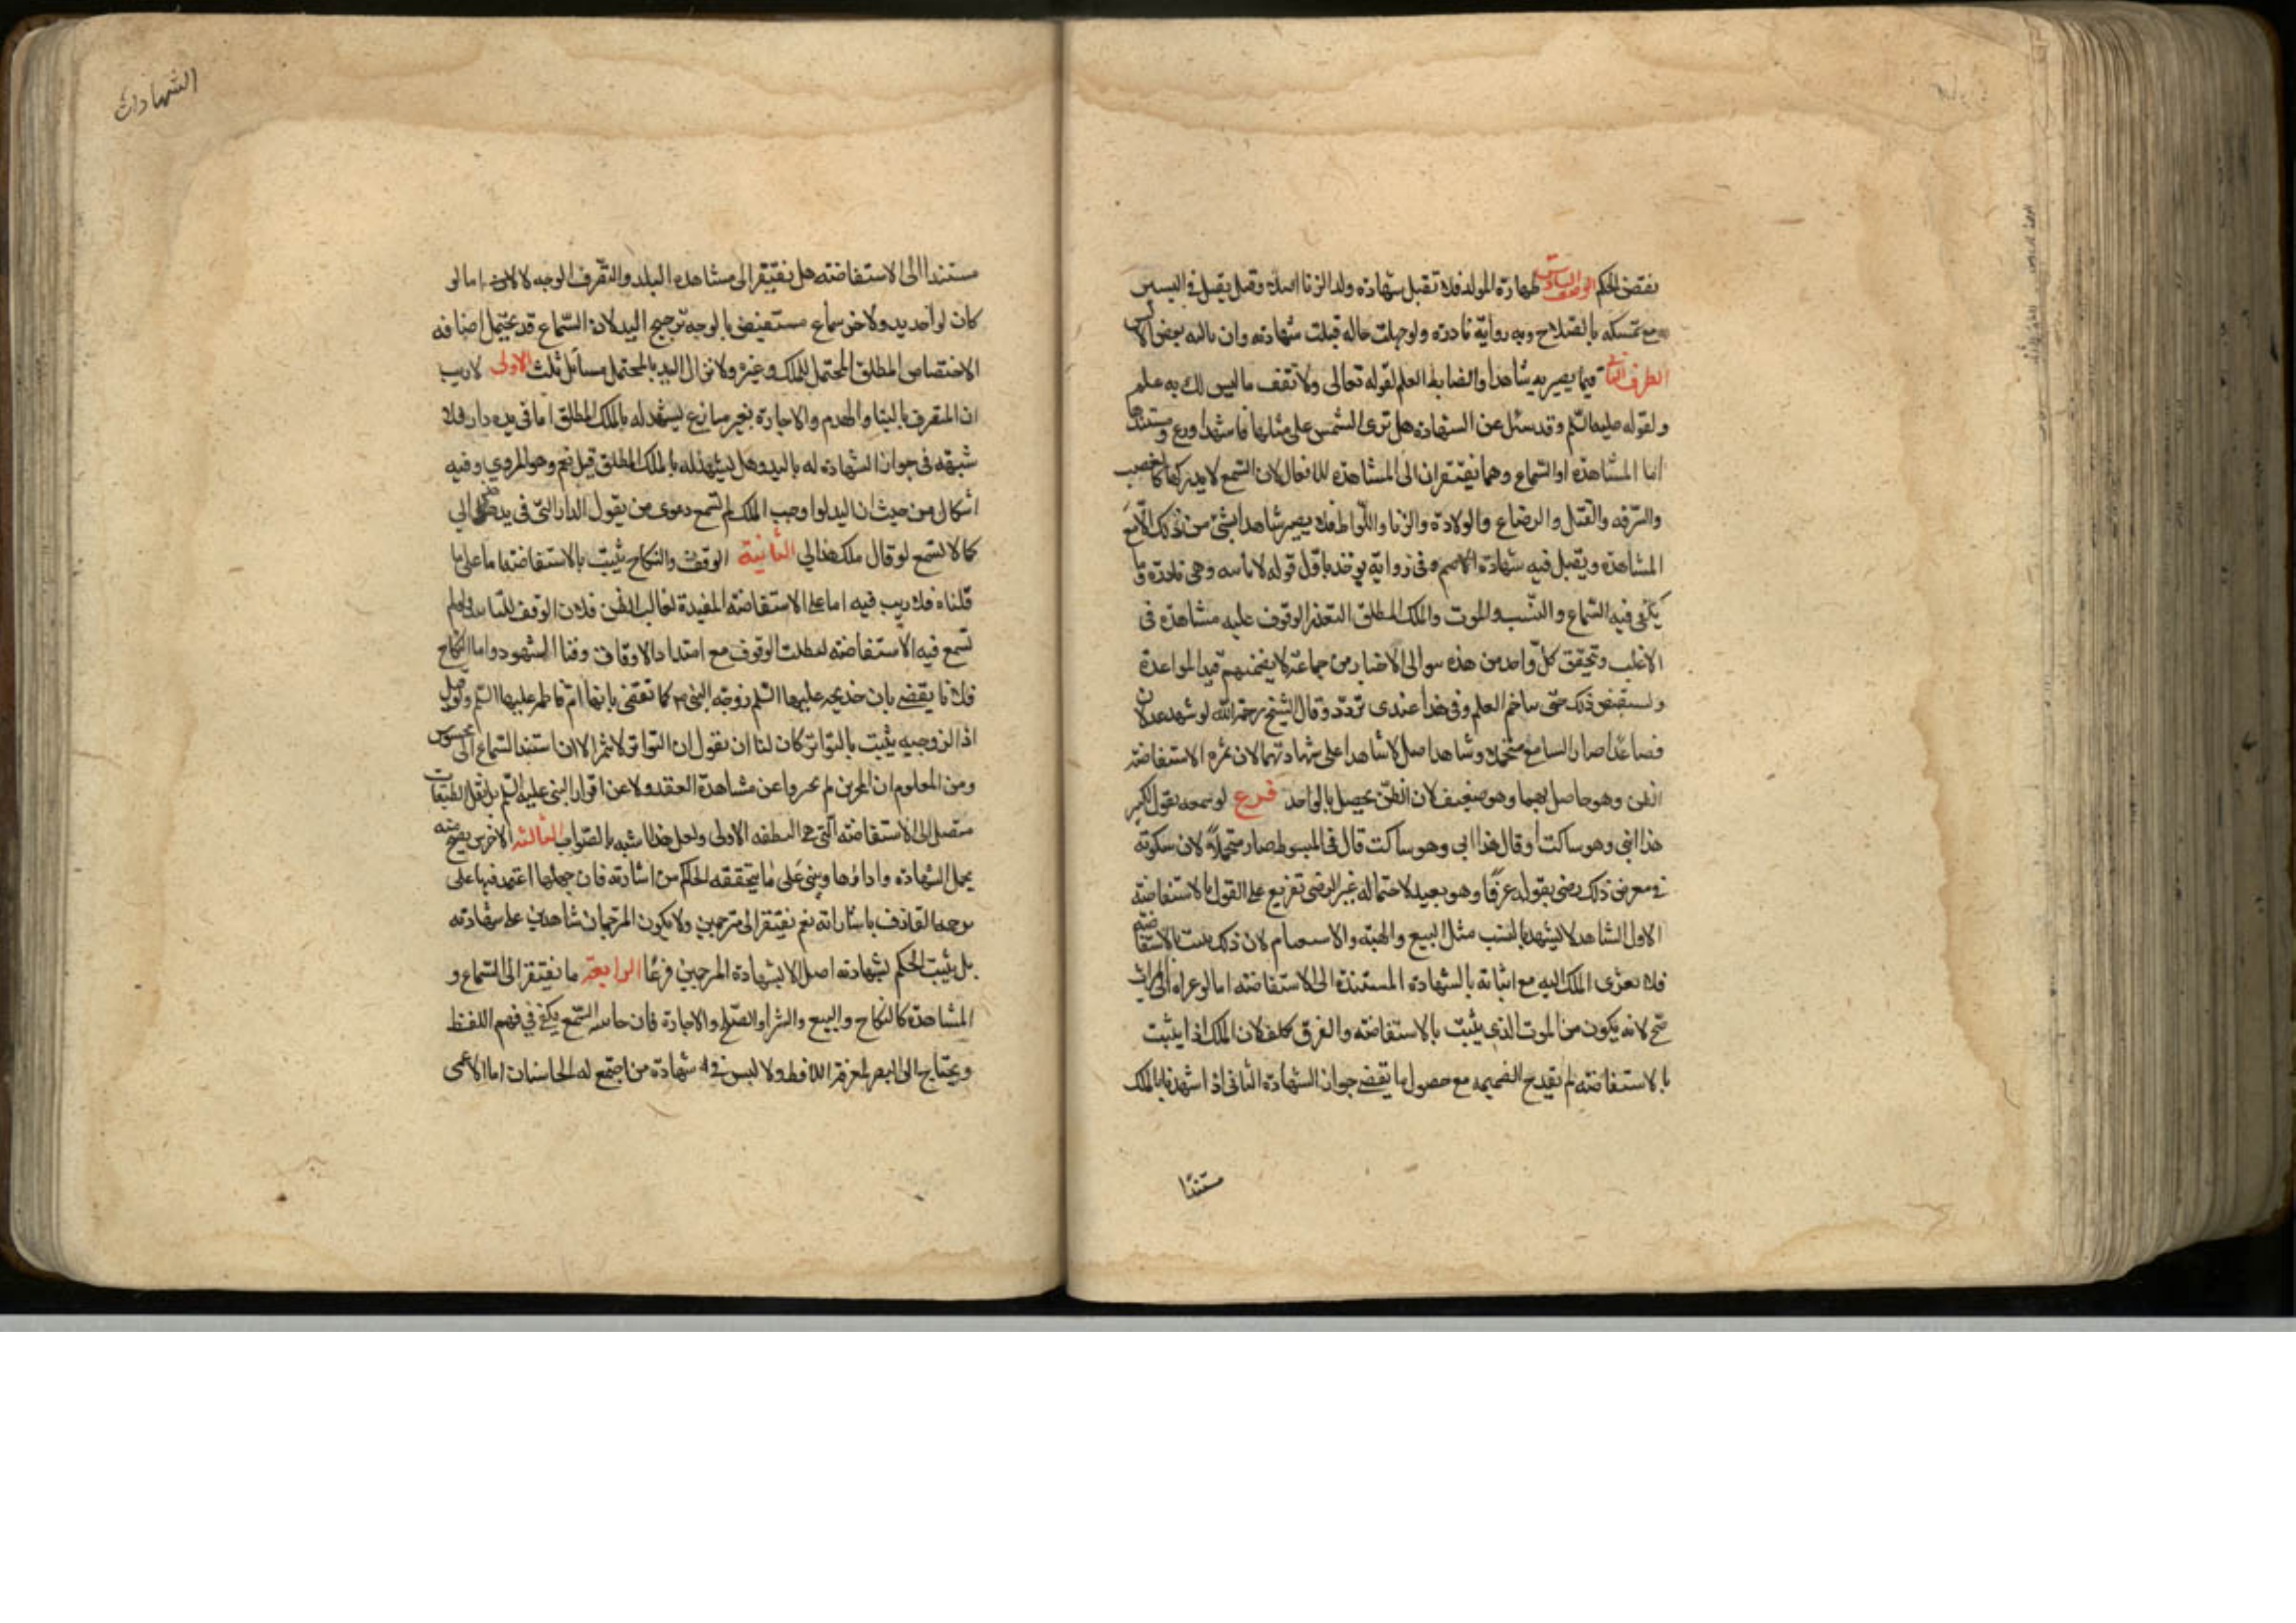 ينقض الحكم الوصف السادس طهارة المولد فلا تقبل شهادة ولد الزنا اصلا وقيل يقبل في اليسير
مع تمسكه بالصلاح وبه رواية نادرة ولو جهلت حاله قبلت شهادته وان نالته بعض الالسن
الطرف الثاني فيما يصير به شاهدا والضابط العلم لقوله تعالى ولا تقف ما ليس لك به علم
ولقوله عليه السلم وقد سئل عن الشهادة هل ترى الشمس على مثلها فاشهد او دع ومستندها
اما المشاهدة او السماع وهما يفتقران الى المشاهدة للافعال لان السمع لا يدركها كالغصب
والسرقة والقتل والرضاع والولادة والزنا واللواط فلا يصير شاهدا بشئ من ذلك الا مع
المشاهدة ويقبل فيه شهادة الاصم وفي رواية يوخذ باول قوله لا بثانيه وهي نادرة وما
يكفي فيه السماع والنسب والموت والملك المطلق لتعذر الوقوف عليه مشاهدة في
الاغلب وتحقق كل واحد من هذه سوالي الاخبار من جماعة لا يضمنهم قيد المواعدة
ويستفيض ذلك حتى يتاخم العلم وفي هذا عندي تردد وقال الشيخ رحمه الله لو شهد عدلان
فصاعدا صار السامع متحملا وشاهد اصل لا شاهدا على شهادتهما لان ثمره الاستفاضة
الظن وهو حاصل بهما وهو ضعيف لان الظن يحصل بالواحد فرع لو سمعه يقول للكبير
هذا ابني وهو ساكت او قال هذا ابي وهو ساكت قال في المبسوط صار متحملا لان سكوته
في معرض ذلك رضى بقوله عرفا وهو بعيد لاحتماله غير الرضى تفريع على القول بالاستفاضة
الاول الشاهد لا يشهد بالسبب مثل البيع والهبة والاستغنام لان ذلك لا يثبت بالاستفاضة
فلا يعزى الملك اليه مع اثباته بالشهادة المستندة الى الاستفاضة اما لو عزاه الى الميراث
صح لانه يكون من الموت الذي يثبت بالاستفاضة والفرق تكلف لان الملك اذا يثبت
بالاستفاضة لم تقدح الضميمه مع حصول ما يقضي جواز الشهادة الثاني اذا شهد بالملك
مستندا
الشهادات
مستندا الى الاستفاضة هل يفتقر الى مشاهدة اليد والتصرف الوجه لا اما لو
كان لواحد يد ولاخر سماع مستفيض بالوجه ترجيح اليد لان السماع قد يحتمل اضافة
الاختصاص المطلق المحتمل للملك وغيره ولا تزال اليد بالمحتمل مسائل ثلث الاولى لا ريب
ان المتصرف بالبناء والهدم والاجارة بغير منازع يشهد له بالملك المطلق اما في يده دار فلا
شبهة في جواز الشهادة له باليد وهل يشهد له بالملك المطلق قيل نعم وهو المروي وفيه
اشكال من حيث ان اليد لو اوجب الملك لم تسمع دعوى من يقول الدار التي في يد هذا لي
كما لا تسمع لو قال ملك هذا لي الثانية الوقف والنكاح يثبت بالاستفاضة اما على ما
قلناه فلا ريب فيه اما على الاستفاضة المفيدة لغالب الظن فلان الوقف للتابيد فلو لم
تسمع فيه الاستفاضة لبطلت الوقوف مع امتداد الاوقات وفنا الشهود واما النكاح
فلانا يقضي بان خديجة عليها السلم زوجة النبي ص كما نقضي بانها ام فاطمة عليها السلم ولو قيل
اذا الزوجية يثبت بالتواتر كان لنا ان نقول ان التواتر لا يثمر الا ان استند السماع الى محسوس
ومن المعلوم ان المخبرين لم يخبروا عن مشاهدة العقد ولا عن اقرار النبي عليه السلم بل نقل الطبقات
متصل الى الاستفاضة التي هي الطبقه الاولى ولعل هذا اشبه بالصواب الثالثة الاخرس يصح منه
تحمل الشهادة واداؤها ويبنى على ما يتحققه الحاكم من اشارته فان جهلها اعتمد فيها على
ترجمة العارف باشاراته نعم يفتقر الى مترجمين ولا يكون المترجمان شاهدين على شهادته
بل يثبت الحكم بشهادته اصلا لا بشهادة المترجمين فرعا الرابعة ما يفتقر الى السماع و
المشاهدة كالنكاح والبيع والشرا والصلح والاجارة فان حاسة السمع يكفي في فهم اللفظ
ويحتاج الى البصر لمعرفة اللافظ ولا لبس في شهادة من اجتمع له الحاستان اما الاعمى